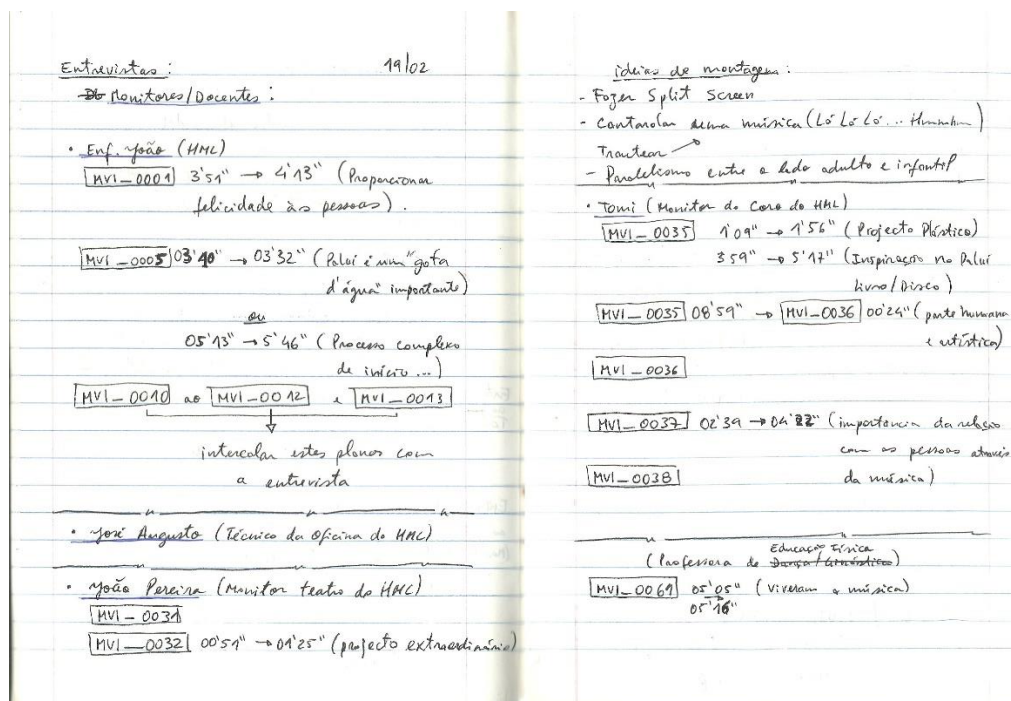 Entrevistas :
19/02
Monitores/Docentes :
• Enf. João (HML)
MVI_0001 3'51" → 4'13" (Proporcionar
felicidade às pessoas).
MVI_0005 03'10" → 03'32" (Palui é um "gota
d'água" importante)
ou
05'13" → 5'46" (Processo complexo
de início ...)
MVI_0010 ao MVI_0012 e MVI_0013
intercalar estes planos com
a entrevista
• José Augusto (Técnico da Oficina do HML)
• João Pereira (Monitor teatro do HML)
MVI_0031
MVI_0032 00'51" → 01'25" (projecto extraordinário)
ideias de montagem :
- Fazer Split Screen
- Cantarolar uma música (Lá Lá Lá ... Hmmhm)
Trautear
- Paralelismo entre o lado adulto e infantil
• Tomi (Monitor do Coro do HML)
MVI_0035 1'09" → 1'56" (Projecto Plástico)
3'59" → 5'17" (Inspiração no Palui
Livro/Disco)
MVI_0035 08'59" → MVI_0036 00'24" (parte humana
e artística)
MVI_0036
MVI_0037 02'39 → 04'22" (importancia da relação
com as pessoas através
MVI_0038 da música)
Educação Física
(Professora de Dança/Ginástica)
MVI_0061 05'05" (Viveram a música)
05'16"